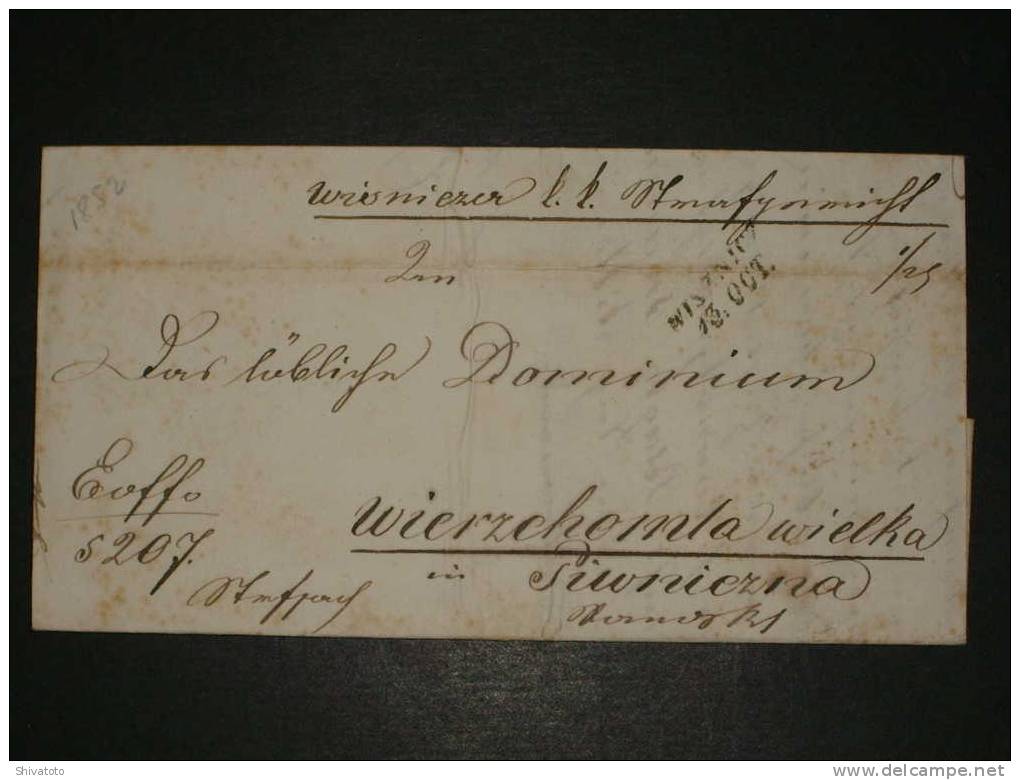 1852
Wisniczer k. k. Strafgericht
An
WISZNICZ
13. OCT.
Das löbliche Dominium
Exoffo
s 207.
Wierzchomla wielka
in Piwniczna
Strafsach
Shivatoto
delcampe.net